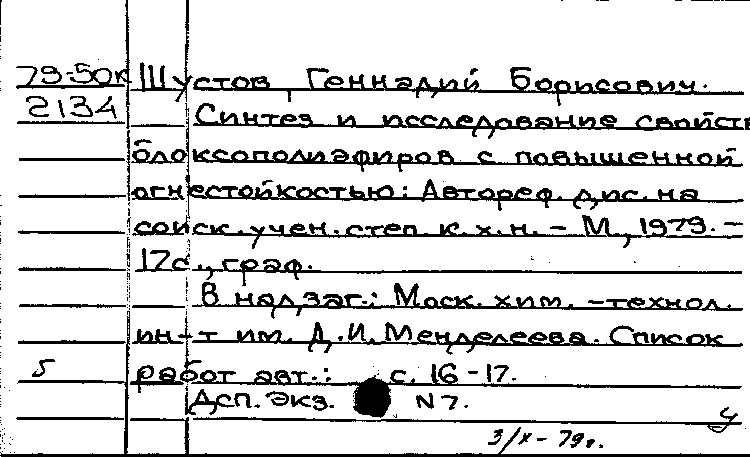 79-50к Шустов, Геннадий Борисович.
2134 Синтез и исследование свойств
блоксополиэфиров с повышенной
огнестойкостью: Автореф. дис. на
соиск. учен. степ. к. х. н. - М., 1979. -
17с., граф.
В надзаг.: Моск. хим. -технол.
ин-т им. Д. И. Менделеева. Список
б работ авт.: с. 16-17.
Дсп. Экз. N 7.
У
3/х- 79г.